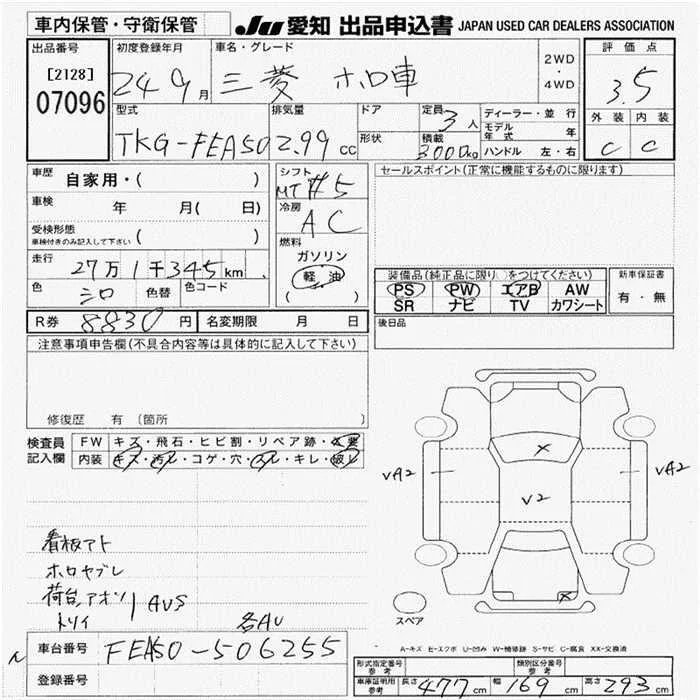 車内保管・守衛保管 JU 愛知 出品申込書 JAPAN USED CAR DEALERS ASSOCIATION
出品番号 初度登録年月 車名・グレード 2WD ・ 4WD 評価点
[2128] 24 9月 三菱 ホロ車 3.5
07096
型式 排気量 ドア 定員 3人 ディーラー・並行 外装 内装
TKG-FEA50 2.99cc 形状 積載 3000kg モデル年式 年 C C
ハンドル 左・右
車歴 自家用・( ) シフト セールスポイント(正常に機能するものに限ります)
MT #5
車検 年 月( 日) 冷房
AC
受検形態 ( )
車検付きのみ記入して下さい
燃料
ガソリン
走行 27万1千345km 軽油 装備品(純正品に限り○をつけてください) 新車保証書
色 シロ 色替 色コード ( ) PS PW エアB AW 有・無
SR ナビ TV カワシート
R券 8830円 名変期限 月 日 後日品
注意事項申告欄(不具合内容等は具体的に記入して下さい)
修復歴 有 (箇所 )
検査員 FW キズ・飛石・ヒビ割・リペア跡・交要
記入欄 内装 キズ・汚レ・コゲ・穴・スレ・キレ・破レ
X
VA2 VA2
V2
看板アト
ホロヤブレ
荷台,アオリ AUS
トリイ 各AU X
スペア
A-キズ E-エクボ U-凹み W-補修跡 S-サビ C-腐食 XX-交換済
車台番号 FEA50-506255
登録番号
型式指定番号 参考 類別区分番号 参考
車庫証明用 参考 長さ 477cm 幅 169cm 高さ 293cm